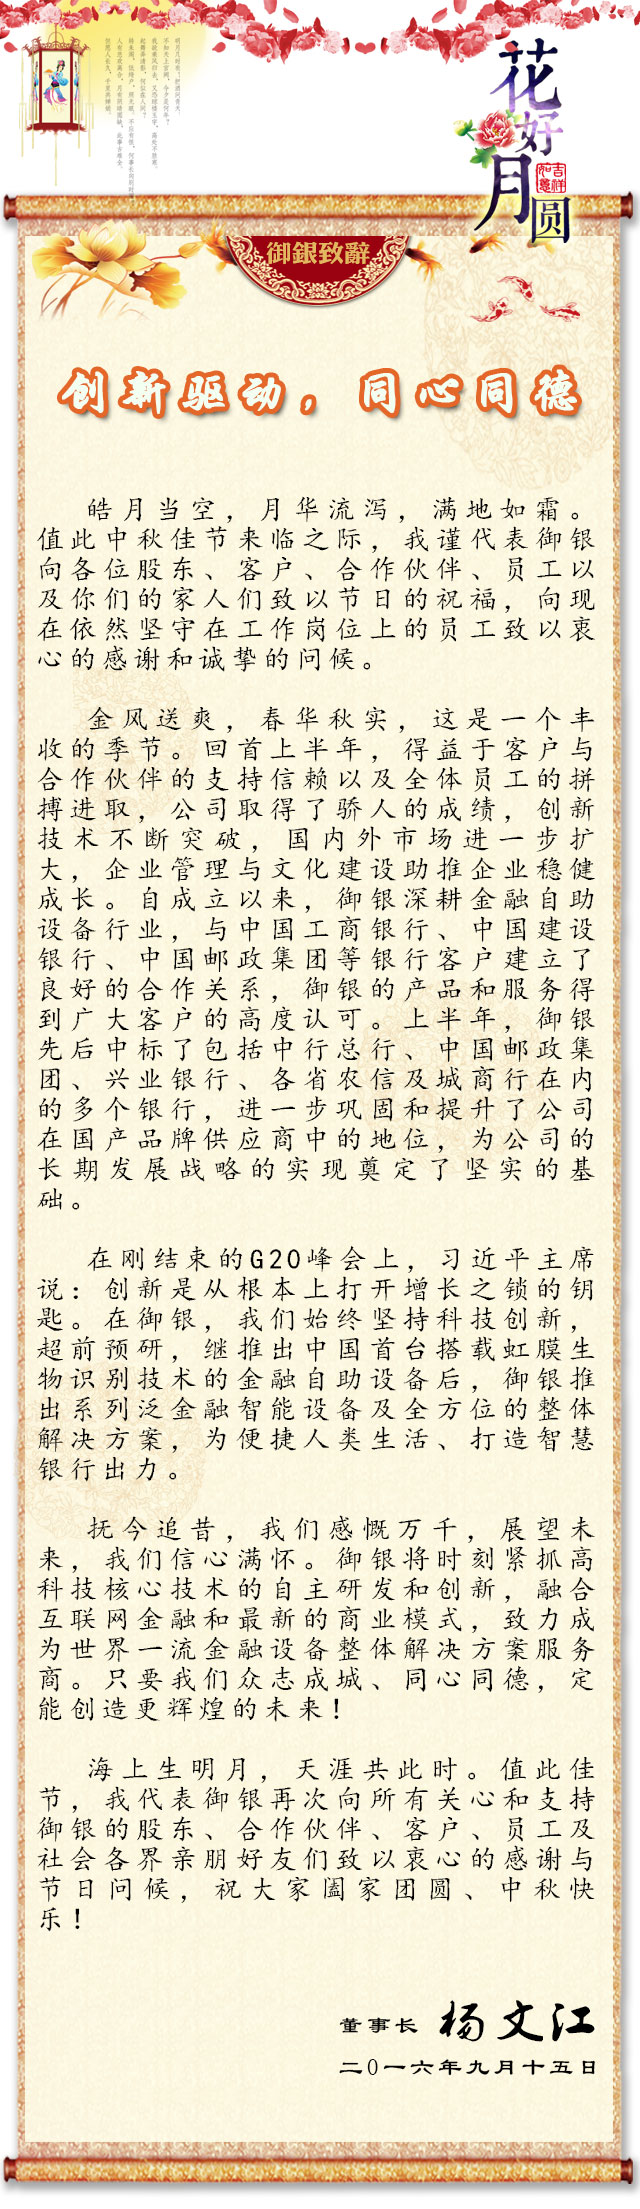 花好月圆
吉祥如意
御銀致辭
创新驱动，同心同德
皓月当空，月华流泻，满地如霜。
值此中秋佳节来临之际，我谨代表御银
向各位股东、客户、合作伙伴、员工以
及你们的家人们致以节日的祝福，向现
在依然坚守在工作岗位上的员工致以衷
心的感谢和诚挚的问候。
金风送爽，春华秋实，这是一个丰
收的季节。回首上半年，得益于客户与
合作伙伴的支持信赖以及全体员工的拼
搏进取，公司取得了骄人的成绩，创新
技术不断突破，国内外市场进一步扩
大，企业管理与文化建设助推企业稳健
成长。自成立以来，御银深耕金融自助
设备行业，与中国工商银行、中国建设
银行、中国邮政集团等银行客户建立了
良好的合作关系，御银的产品和服务得
到广大客户的高度认可。上半年，御银
先后中标了包括中行总行、中国邮政集
团、兴业银行、各省农信及城商行在内
的多个银行，进一步巩固和提升了公司
在国产品牌供应商中的地位，为公司的
长期发展战略的实现奠定了坚实的基
础。
在刚结束的G20峰会上，习近平主席
说：创新是从根本上打开增长之锁的钥
匙。在御银，我们始终坚持科技创新，
超前预研，继推出中国首台搭载虹膜生
物识别技术的金融自助设备后，御银推
出系列泛金融智能设备及全方位的整体
解决方案，为便捷人类生活、打造智慧
银行出力。
抚今追昔，我们感慨万千，展望未
来，我们信心满怀。御银将时刻紧抓高
科技核心技术的自主研发和创新，融合
互联网金融和最新的商业模式，致力成
为世界一流金融设备整体解决方案服务
商。只要我们众志成城、同心同德，定
能创造更辉煌的未来！
海上生明月，天涯共此时。值此佳
节，我代表御银再次向所有关心和支持
御银的股东、合作伙伴、客户、员工及
社会各界亲朋好友们致以衷心的感谢与
节日问候，祝大家阖家团圆、中秋快
乐！
董事长 杨文江
二0一六年九月十五日